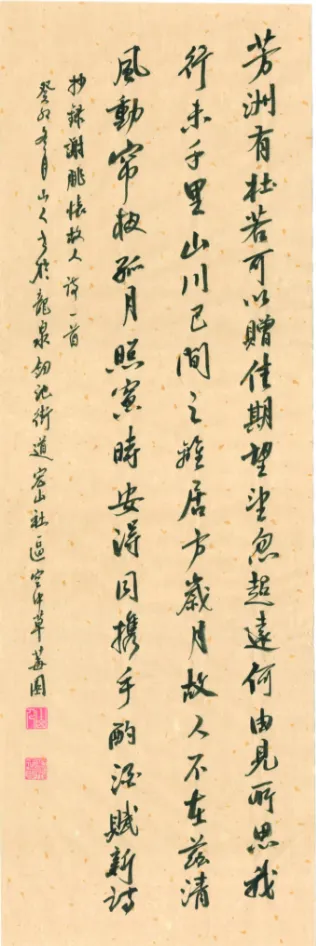 芳洲有杜若可以贈佳期望望忽超遠何由見所思我
行未千里山川已間之離居方歲月故人不在茲清
風動帘夜孤月照窗時安得同携手酌酒賦新詩
抄錄謝朓懷故人詩一首
癸卯冬月山人書於龍泉劍池街道宏山社區空中草莓園